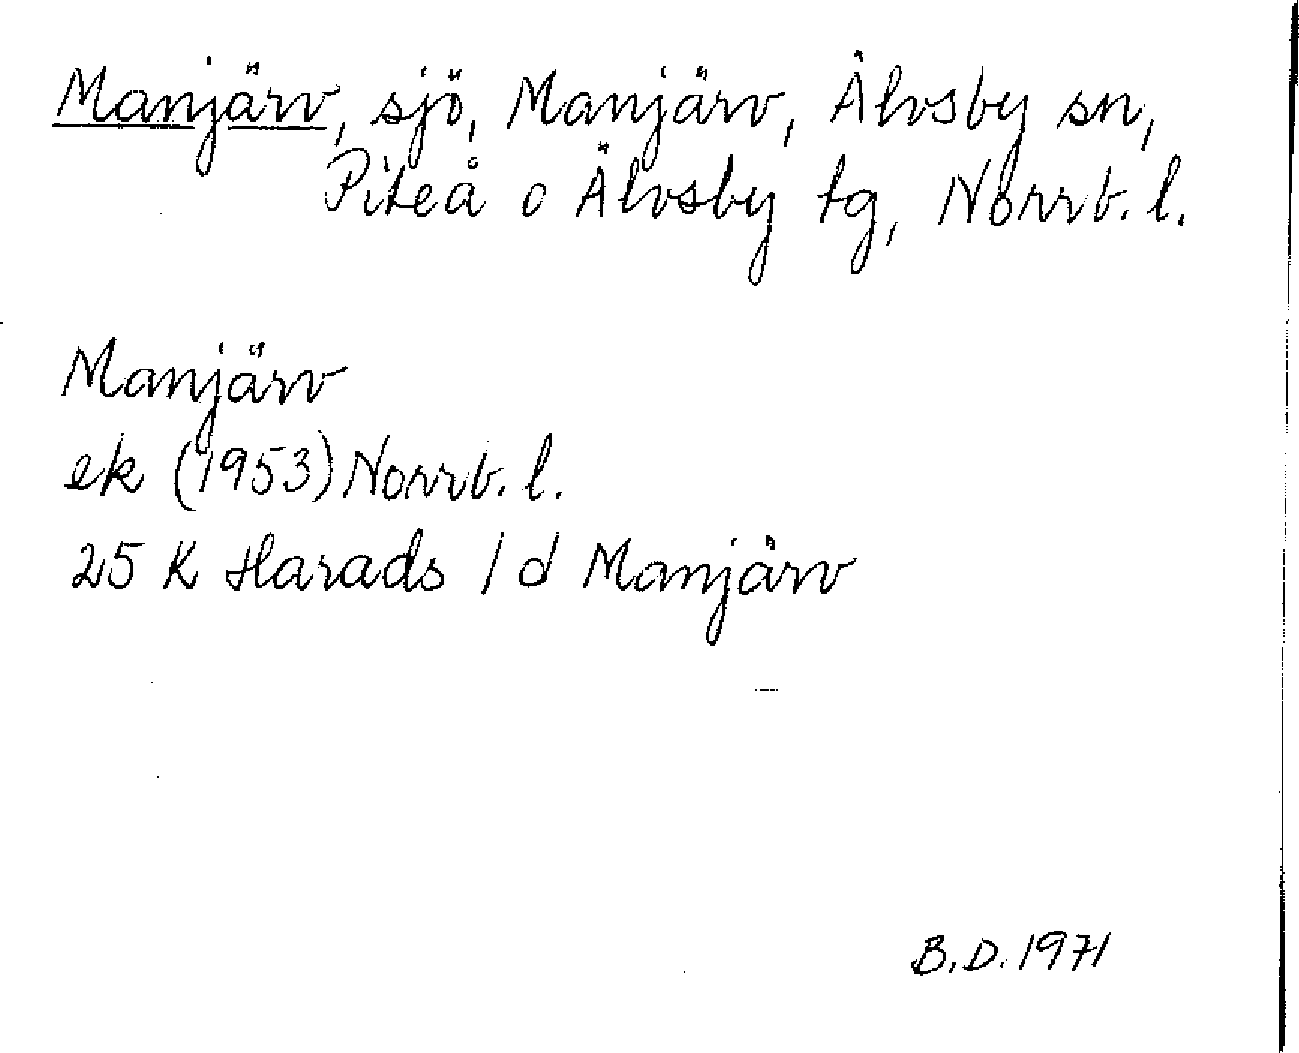 Manjärv, sjö, Manjärv, Älvsby sn,
Piteå o Älvsby tg, Norrb. l.
Manjärv
ek (1953) Norrb. l.
25 K Harads 1 d Manjärv
B.D. 1971